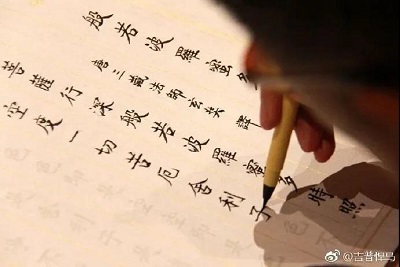 般若波羅蜜多
唐三藏法師玄奘譯
菩薩行深般若波羅蜜多時照
空度一切苦厄舍利子
@吉普悍马